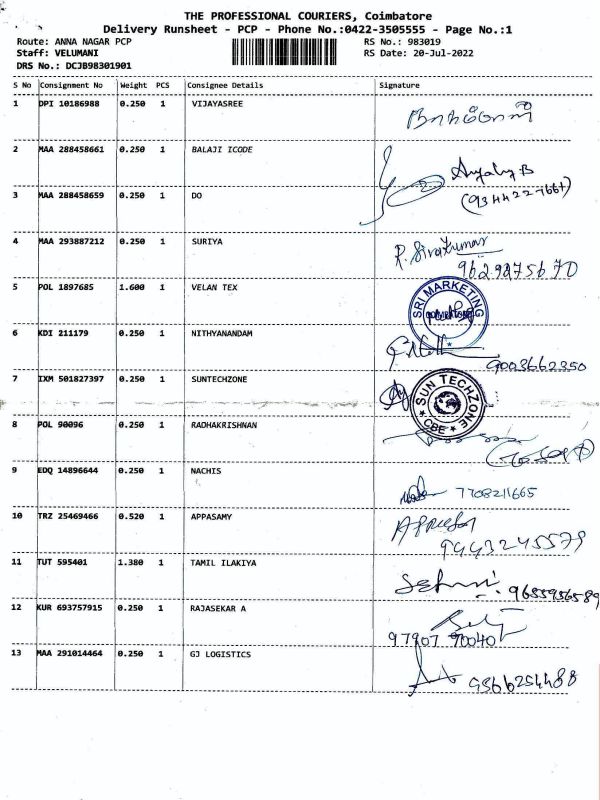 THE PROFESSIONAL COURIERS, Coimbatore
Delivery Runsheet - PCP - Phone No.:0422-3505555 - Page No.:1
Route: ANNA NAGAR PCP RS No.: 983019
Staff: VELUMANI RS Date: 20-Jul-2022
DRS No.: DCJB98301901
S No Consignment No Weight PCS Consignee Details Signature
1 DPI 10186988 0.250 1 VIJAYASREE
2 MAA 288458661 0.250 1 BALAJI ICODE
3 MAA 288458659 0.250 1 DO
4 MAA 293887212 0.250 1 SURIYA
P. Sivakumar
5 POL 1897685 1.600 1 VELAN TEX
SRI MARKETING
6 KDI 211179 0.250 1 NITHYANANDAM
9003662350
7 IXM 501827397 0.250 1 SUNTECHZONE
SUN TECHZONE
* CBE *
8 POL 90096 0.250 1 RADHAKRISHNAN
9 EDQ 14896644 0.250 1 NACHIS
7708211665
10 TRZ 25469466 0.520 1 APPASAMY
9443245579
11 TUT 595401 1.380 1 TAMIL ILAKIYA
9655956589
12 KUR 693757915 0.250 1 RAJASEKAR A
97907 70040
13 MAA 291014464 0.250 1 GJ LOGISTICS
9566254488